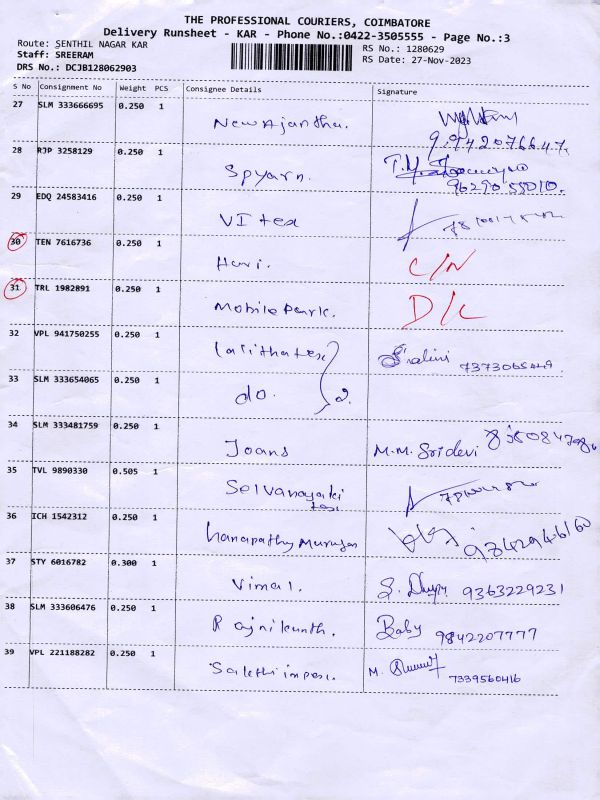 THE PROFESSIONAL COURIERS, COIMBATORE
Delivery Runsheet - KAR - Phone No.:0422-3505555 - Page No.:3
Route: SENTHIL NAGAR KAR
RS No.: 1280629
Staff: SREERAM
RS Date: 27-Nov-2023
DRS No.: DCJB128062903
S No Consignment No Weight PCS Consignee Details Signature
27 SLM 333666695 0.250 1 New Ajantha.
28 RJP 3258129 0.250 1 Spyarn. 9629055010.
29 EDQ 24583416 0.250 1 VI tex
30 TEN 7616736 0.250 1 Hari. C/N
31 TRL 1982891 0.250 1 Mobile Park. D/L
32 VPL 941750255 0.250 1 Lalitha tex Shalini 7373065449.
33 SLM 333654065 0.250 1 do. 2.
34 SLM 333481759 0.250 1 Joans M.M. Sridevi
35 TVL 9890330 0.505 1 Selvanayaki tex.
36 ICH 1542312 0.250 1 Ganapathy Murugan
37 STY 6016782 0.300 1 Vimal. 9363229231
38 SLM 333606476 0.250 1 Rajnikanth. Baby 9842207777
39 VPL 221188282 0.250 1 Sakthi impex. M. 7339560416